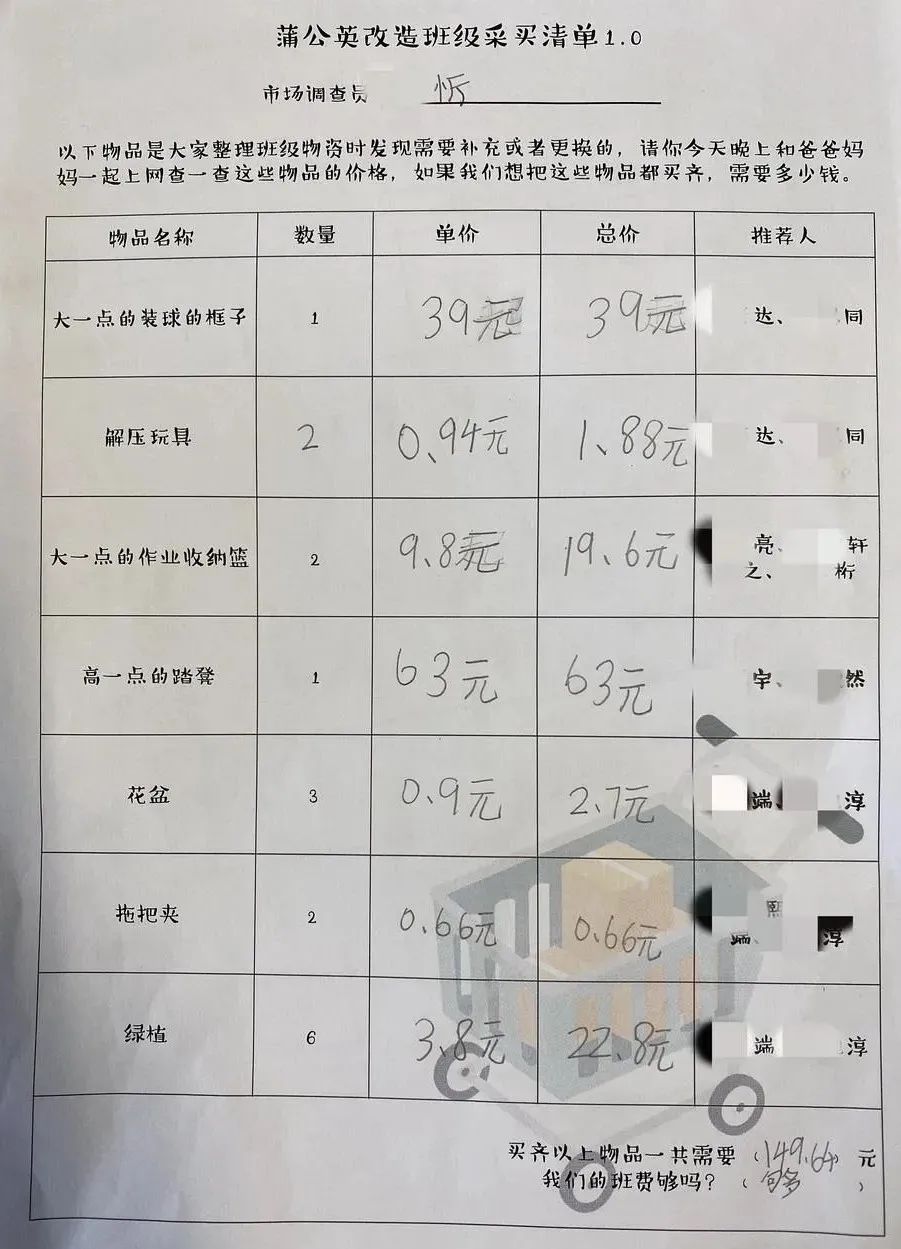 蒲公英改造班级采买清单1.0
市场调查员 忻
以下物品是大家整理班级物资时发现需要补充或者更换的，请你今天晚上和爸爸妈
妈一起上网查一查这些物品的价格，如果我们想把这些物品都买齐，需要多少钱。
物品名称 数量 单价 总价 推荐人
大一点的装球的框子 1 39元 39元 达、 同
解压玩具 2 0.94元 1.88元 达、 同
大一点的作业收纳篮 2 9.8元 19.6元 亮、 轩
之、 桁
高一点的踏凳 1 63元 63元 宇、 然
花盆 3 0.9元 2.7元 端、 淳
拖把夹 2 0.66元 0.66元 熙
端、 淳
绿植 6 3.8元 22.8元 端、 淳
买齐以上物品一共需要（149.64）元
我们的班费够吗？（够）